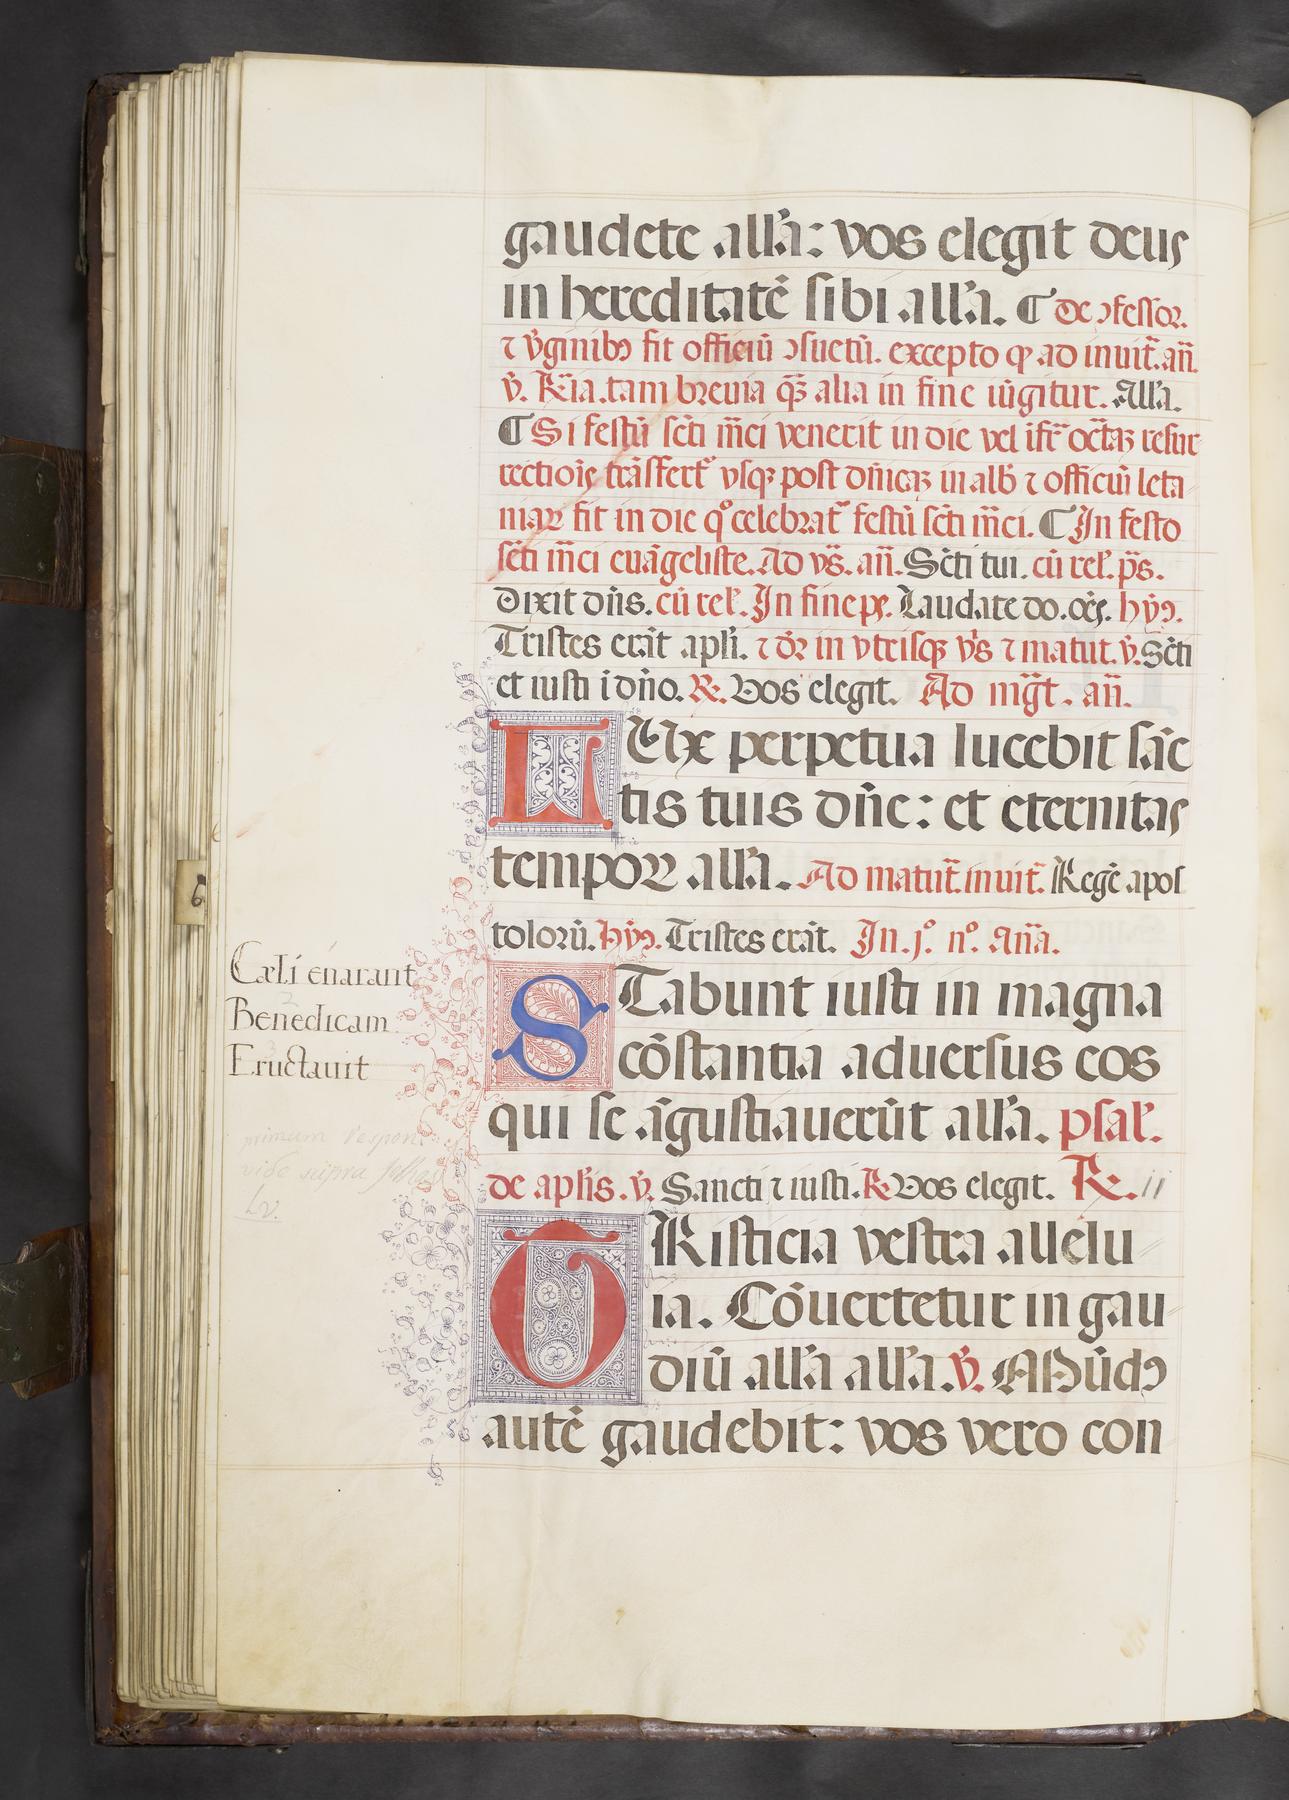 gaudete all'a: vos elegit deus
in hereditatē sibi all'a. ¶ De ɔfessor.
⁊ v̄ginibꝰ fit officiū ɔsuetū. excepto qꝫ ad inuit̄. an̄.
v̄. R̄ia. tam breuia qꝫ̄ alia in fine iūgitur. All'a.
¶ Si festū sc̄ti m̄ci venerit in die vel ifr̄ oct̄aꝫ resur
rectiōis trāsfert᷑ vsqꝫ post dn̄icaꝫ in alb̄ ⁊ officiū leta
niaꝝ fit in die qº celebrat᷑ festū sc̄ti m̄ci. ¶ In festo
sc̄ti m̄ci euāgeliste. Ad vs̄. an̄. Sc̄ti tui. cū rel'. ps̄.
Dixit dn̄s. cū rel'. In fine ps̄. Laudate do. oēs. hyꝰ.
Tristes erāt apl'i. ⁊ dr̄ in vtrisqꝫ vs̄ ⁊ matut. v̄. Sc̄ti
et iusti i dn̄o. R̄. Vos elegit. Ad mgt̄. an̄.
LUx perpetua lucebit sāc
tis tuis dn̄e: et eternitas
tempoꝝ all'a. Ad matut̄. inuit̄. Regē apos
tolorū. hyꝰ. Tristes erāt. In. j.º nº. an̄a.
STabunt iusti in magna
cōstantia aduersus eos
qui se āgustiauerūt all'a. psal'.
de apl'is. v̄. Sancti ⁊ iusti. R̄ Vos elegit. R̄. ii
TRisticia vestra allelu
ia. Cōuertetur in gau
diū all'a all'a. v̄. MUndꝰ
autē gaudebit: vos vero con
Cæli enarant
Benedicam
Eructavit
primum respon
vide supra
6